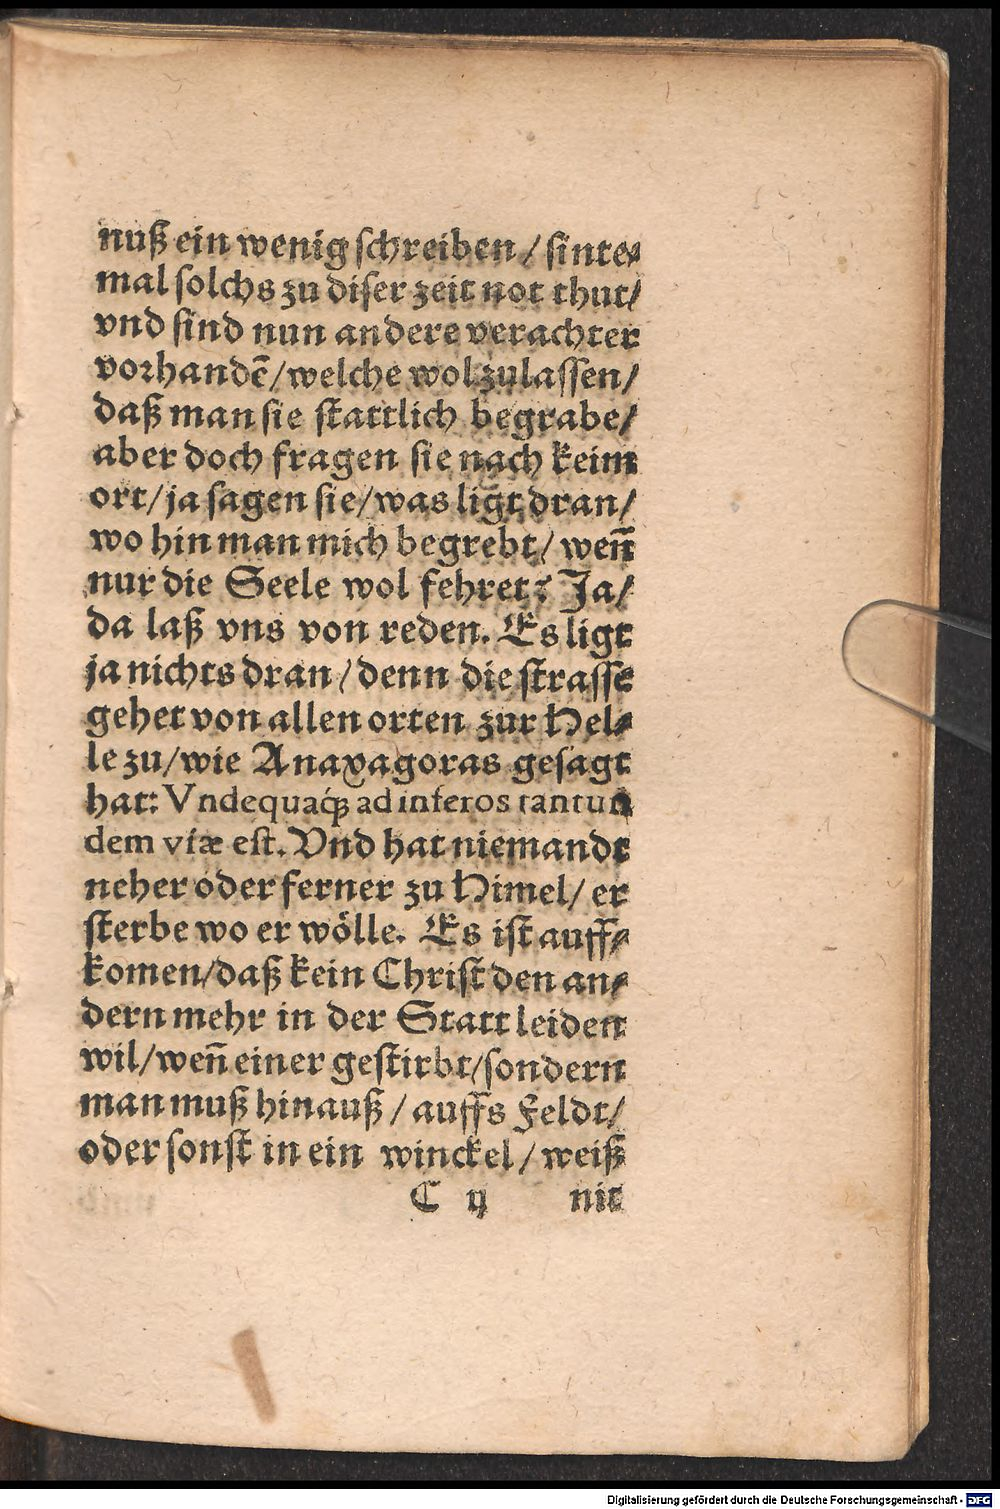 nuß ein wenig schreiben / sinte⸗
mal solchs zu diser zeit not thut/
vnd sind nun andere verachter
vorhandē/welche wol zulassen/
daß man sie stattlich begrabe/
aber doch fragen sie nach keim
ort/ja sagen sie/was ligt dran/
wo hin man mich begrebt/ weñ
nur die Seele wol fehret? Ja/
da laß vns von reden. Es ligt
ja nichts dran / denn die strasse
gehet von allen orten zur Hel⸗
le zu/wie Anaxagoras gesagt
hat: Vndequaq́; ad inferos tantun
dem viæ est. Vnd hat niemandt
neher oder ferner zu Himel/ er
sterbe wo er wölle. Es ist auff⸗
komen/daß kein Christ den an⸗
dern mehr in der Statt leiden
wil/weñ einer gestirbt/sondern
man muß hinauß / auffs Feldt/
oder sonst in ein winckel / weiß
C ij nit
Digitalisierung gefördert durch die Deutsche Forschungsgemeinschaft - DFG